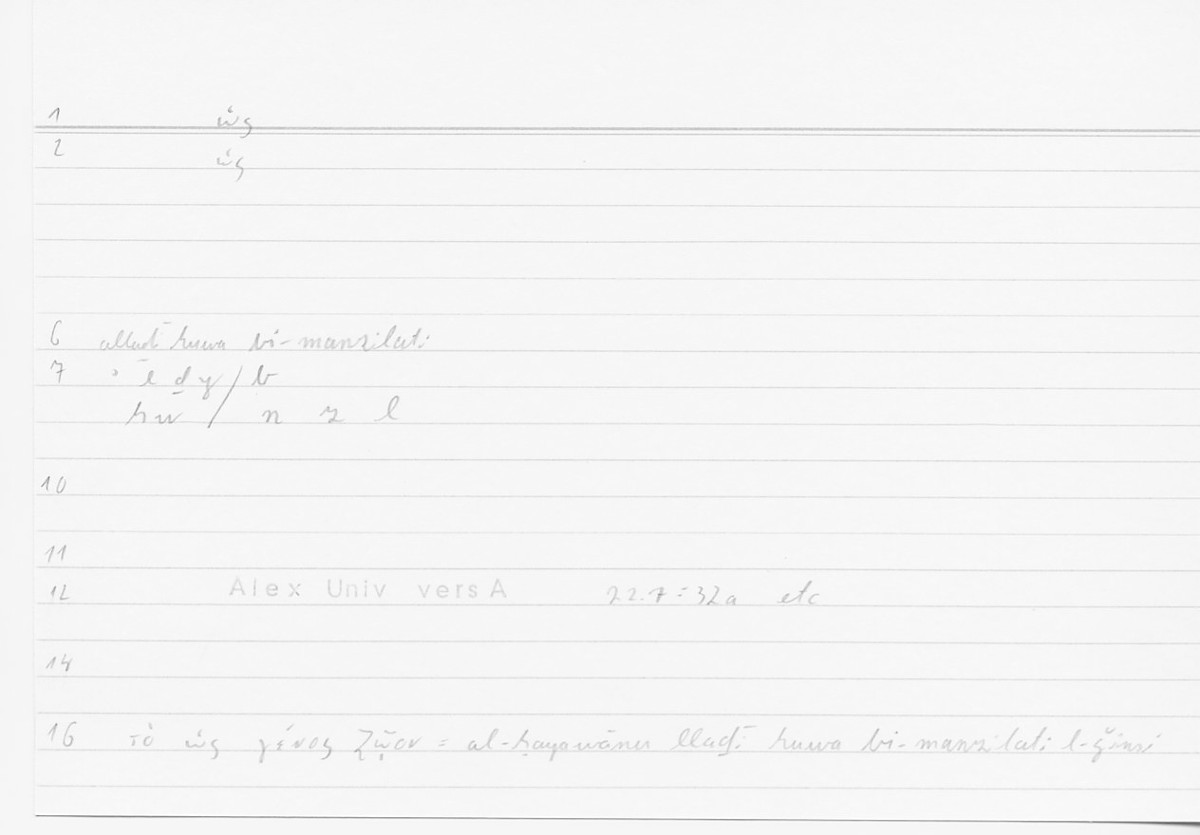 1 ὡς
2 ὡς
6 allaḏī huwa bi-manzilati
7 ʾ l ḏ y / b
hw / n z l
10
11
12 Alex Univ vers A 22.7 = 32a etc
14
16 τὸ ὡς γένος ζῷον = al-ḥayawānu llaḏī huwa bi-manzilati l-ǧinsi